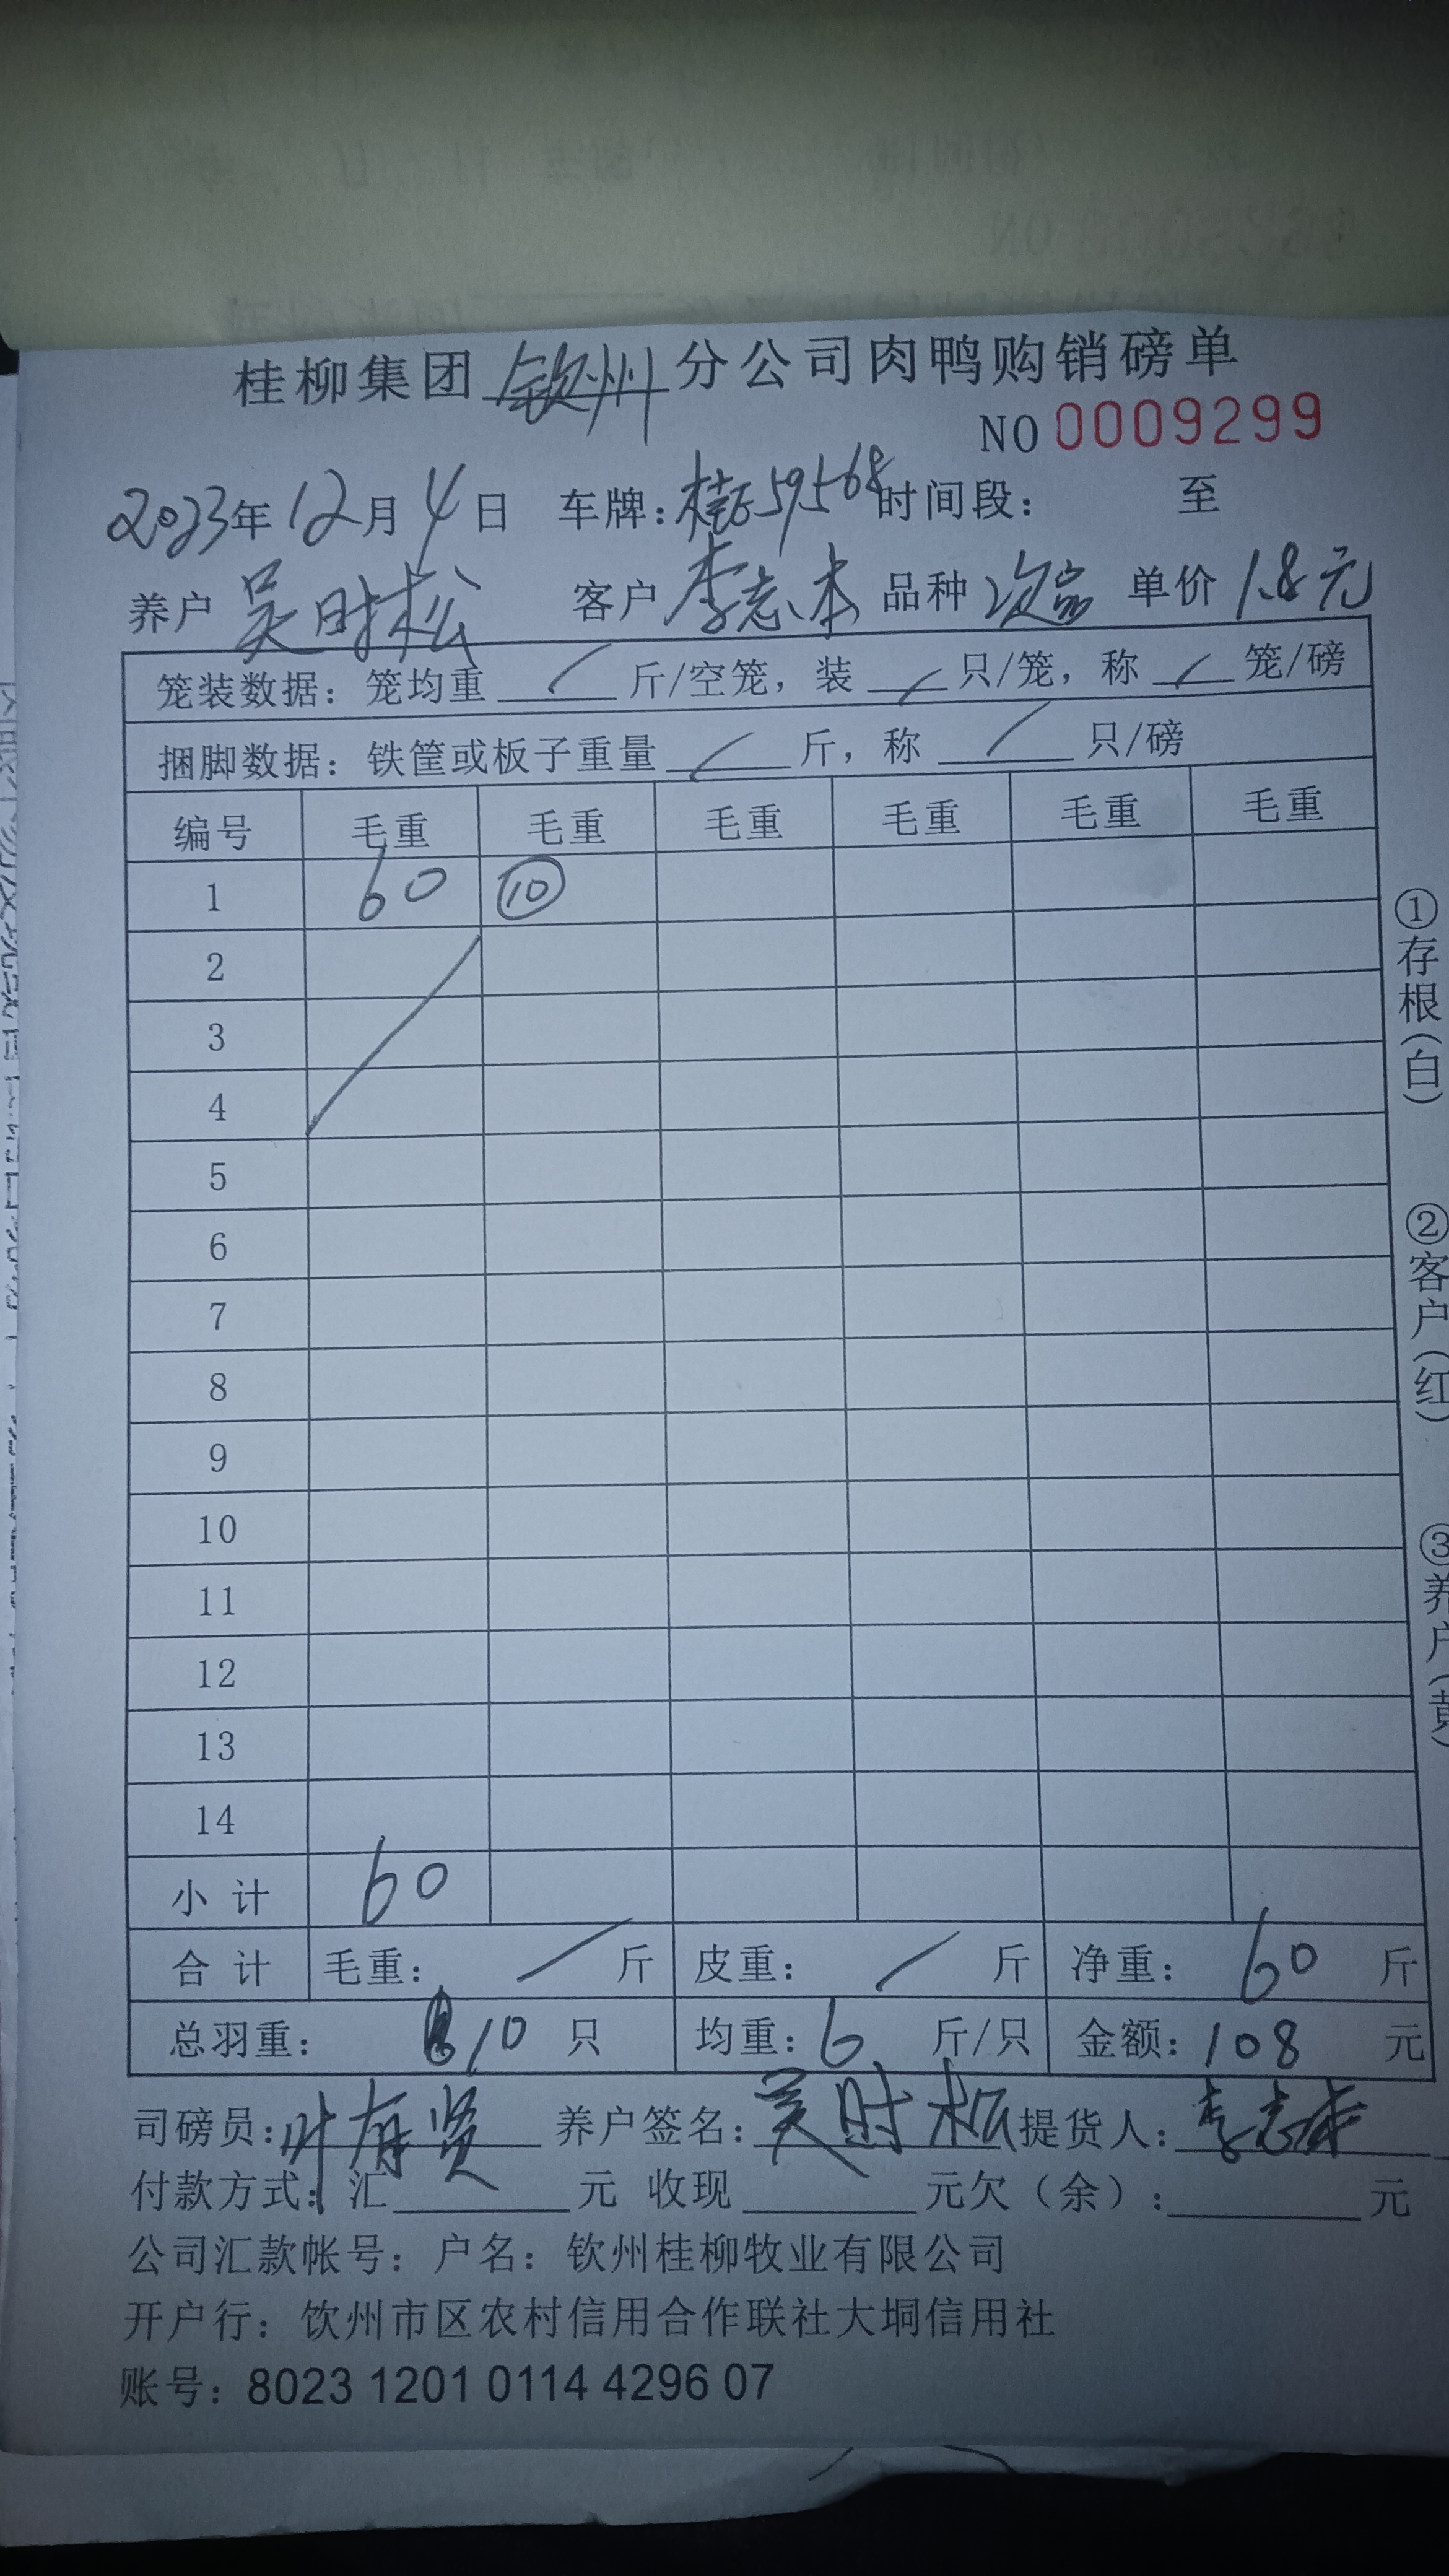 桂柳集团 钦州 分公司肉鸭购销磅单
NO 0009299
2023年 12月 4日 车牌：桂 59568 时间段： 至
养户 吴时松 客户 李志本 品种 次品 单价 1.8元
笼装数据：笼均重 / 斤/空笼，装 / 只/笼，称 / 笼/磅
捆脚数据：铁筐或板子重量 / 斤，称 / 只/磅
编号 毛重 毛重 毛重 毛重 毛重 毛重
1 60 ⑩
2
3
4
5
6
7
8
9
10
11
12
13
14
小计 60
合计 毛重： / 斤 皮重： / 斤 净重： 60 斤
总羽重： 10 只 均重：6 斤/只 金额：108 元
司磅员：叶有贤 养户签名：吴时松 提货人：李志本
付款方式：汇 元 收现 元欠（余）： 元
公司汇款帐号：户名：钦州桂柳牧业有限公司
开户行：饮州市区农村信用合作联社大垌信用社
账号：8023 1201 0114 4296 07
①存根（白）
②客户（红）
③养户（黄）